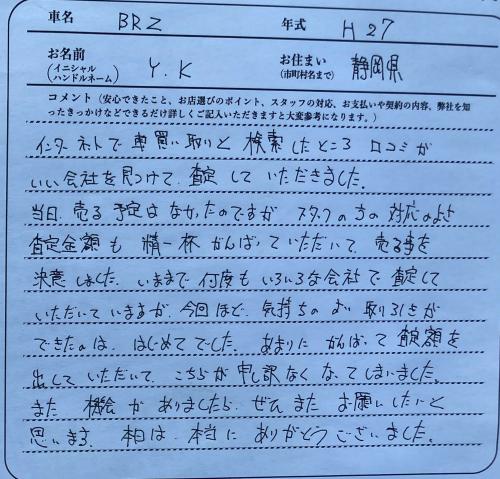 車名 BRZ 年式 H27
お名前 (イニシャル ハンドルネーム) Y.K お住まい (市町村名まで) 静岡県
コメント（安心できたこと、お店選びのポイント、スタッフの対応、お支払いや契約の内容、弊社を知
ったきっかけなどできるだけ詳しくご記入いただきますと大変参考になります。）
インターネットで 車買い取りと 検索したところ 口コミが
いい会社を見つけて、査定していただきました。
当日、売る予定はなかったのですが スタッフの方の対応のよさ
査定金額も 精一杯がんばっていただいて、売る事を
決意しました。いままで何度もいろいろな会社で査定して
いただいていますが、今回ほど、気持ちのよい取り引きが
できたのは、はじめてでした。あまりにがんばって 金額を
出していただいて、こちらが申し訳なくなってしまいました。
また 機会がありましたら、ぜひまたお願いしたいと
思います。本日は、本当にありがとうございました。